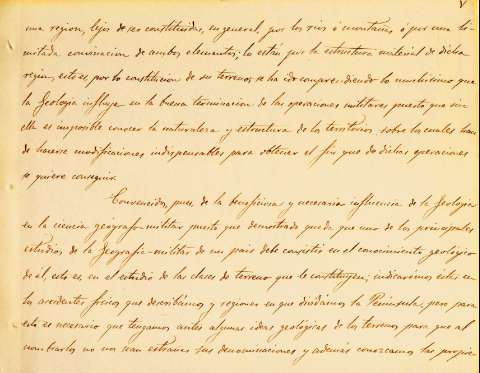 una region, lejos de ser constituidas, en general, por los rios ó montañas ó por una li-
mitada convinacion de ambos elementos; lo están por la estructura material de dicha
region, esto es por la constitucion de su terreno; se ha ido comprendiendo lo muchisimo que
la Geologia influye en la buena terminacion de las operaciones militares puesto que sin
ella es imposible conocer la naturaleza y estructura de los territorios sobre los cuales han
de hacerse modificaciones indispensables para obtener el fin que de dichas operaciones
se quiere conseguir.
Convencidos, pues, de la beneficiosa y necesaria influencia de la Geologia
en la ciencia geografo-militar puesto que demostrado queda que uno de los principales
estudios de la Geografia-militar de un pais debe consistir en el conocimiento geologico
de él, esto es, en el estudio de las clases de terreno que le constituyen; indicarémos éstas en
los accidentes fisicos que describámos y regiones en que dividámos la Peninsula, pero para
esto es necesario que tengamos antes algunas ideas geológicas de los terrenos para que al
nombrarlos no nos sean estrañas sus denominaciones y además conozcamos las propie-